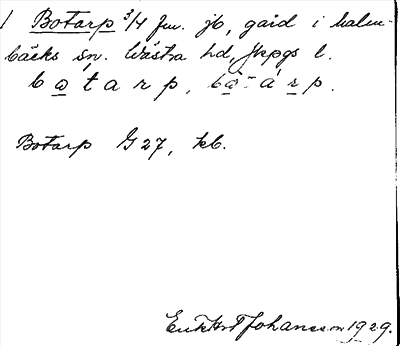 1 Botarp 3/4 fm. jb, gård i Malm-
bäcks sn. Västra hd, Jkpgs l.
b o t a r p, bo - á r p.
Botarp G 27, kb.
Johansson 1929.